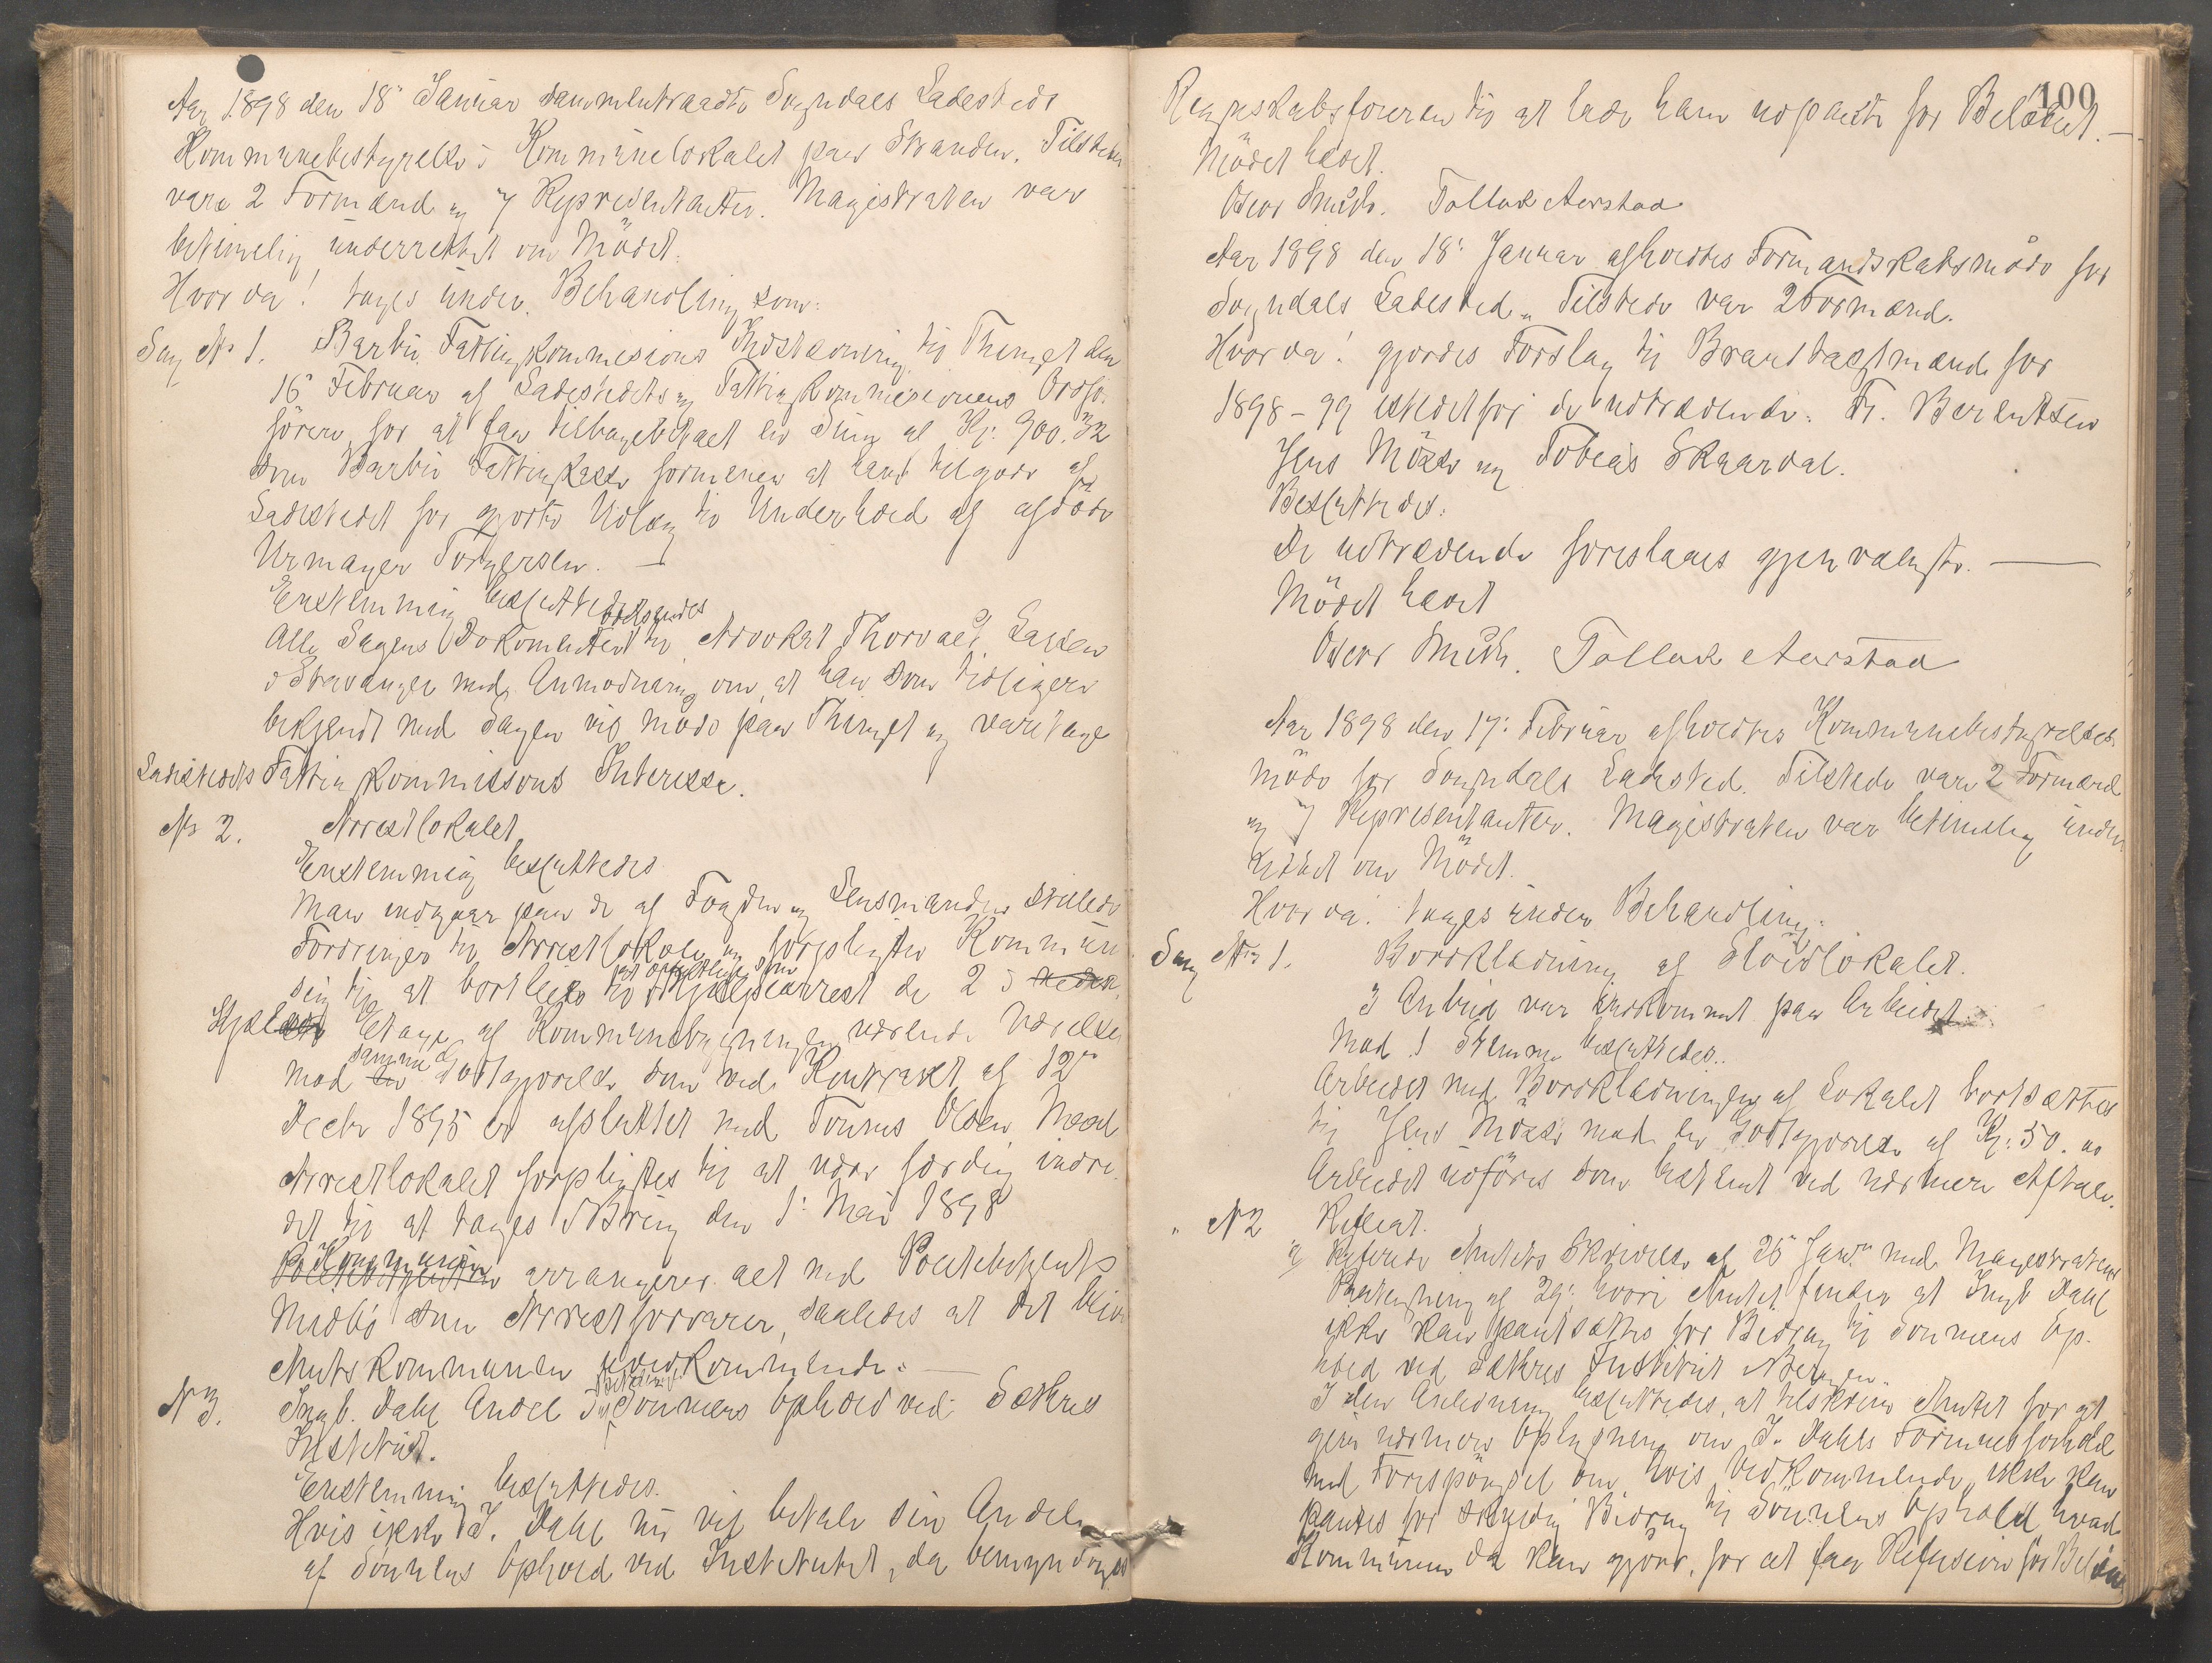 Aar 1898 den 18' Januar sammentraadte Sogndals Ladesteds
Kommunebestyrelse i Kommunelokalet paa Stranden. Tilstede
vare 2 Formænd og 7 Representanter. Magistraten var
betimelig underrettet om Mödet.
Hvorda! toges under Behandling som:
Sag No 1. Barbu Fattigkommisions Indstævning til Thinget den
16' Februar af Ladestedets og Fattigkommisionens Ordfö-
förere, for at faa tilbagebetalt en Sum af Kr. 900.32
som Barbu Fattigkasse formener at have tilgode af
Ladestedet for gjorte Udlæg til Underhold af afdöde
Urmager Torgersen. —
Enstemmig besluttedes
Alle Sagens Dokumenter oversendes til Advokat Thorvald Larsen
i Stavanger med Anmodning om, at han som tidligere
bekjendt med Sagen vil möde paa Thinget og varetage
Ladestedets Fattigkommissons Interesse.
No 2. Arrestlokalet.
Enstemmig besluttedes
Man indgaar paa de af Fogden og Lensmanden stillede
Fordringer til Arrestlokale og forpligter Kommunen
sig til at bortleie til Hjælpearrest de 2 i
Kjelder Etage af Kommunebygningen værende Værelser
mod samme Godtgjörelse som ved Kontrakt af 12te
Decbr 1895 er afsluttet med Tönnes Olsen Moad
Arrestlokalet forpligtes til at være færdig indre-
det til at tages i Brug den 1' Mai 1898
Kommunen arrangerer alt med Politibetjent
Midbö som Arrestforvarer, saaledes at det blir
Amtskommunen uvedkommende. —
N 3. Ingb. Dahl Andel i Sönnens Ophold ved Sæthres
Institut.
Enstemmig besluttedes.
Hvis ikke I. Dahl nu vil betale sin Andel
af Sönnens Ophold ved Institutet, da bemyndiges
100
Regnskabsföreren til at lade ham udpante for Belöbet. —
Mödet hævet.
Oscar Smith. Tollak Aarstad
Aar 1898 den 18' Januar afholdtes Formandskabsmöde for
Sogndals Ladested. Tilstede var 2 Formænd.
Hvorda! gjordes Forslag til Brandtaxtmænd for
1898-99 istedetfor de udtrædende: Fr. Berentsen
Jens Mösse og Tobeas Skaardal.
Besluttedes:
De udtrædende foreslaaes gjenvalgte. —
Mödet hævet
Oscar Smith. Tollak Aarstad
Aar 1898 den 17' Februar afholdtes Kommunebestyrelses
möde for Sogndals Ladested. Tilstede vare 2 Formænd
og 7 Representanter. Magistraten var betimelig under-
rettet om Mödet.
Hvorda! toges under Behandling:
Sag No 1. Bordklædning af Slöidlokalet.
3 Anbud var indkommet paa Arbeidet
Mod 1 Stemme besluttedes.
Arbeidet med Bordklædningen af Lokalet bortsættes
til Jens Mösse mod en Godtgjörelse af Kr. 50. 00
Arbeidet udföres som bestemt ved nærmere Aftale.
" N 2 Referat.
a) Refererede Amtets Skrivelse af 26' Janr. med Magistratens
Paategning af 29', hvori Amtet finder at Ingb. Dahl
ikke kan pantsættes for Bidrag til Sönnens Op-
hold ved Sæthres Institut Bergen.
I den Anledning besluttedes, at tilskrive Amtet for at
give nærmere Oplysning om I. Dahls Formuesforhold
med Forespörgsel om, hvis Vedkommende ikke kan
pantes for skyldig Bidrag til Sönnens Ophold, hvad
Kommunen da kan gjöre, for at faa Refusion for Belöbet